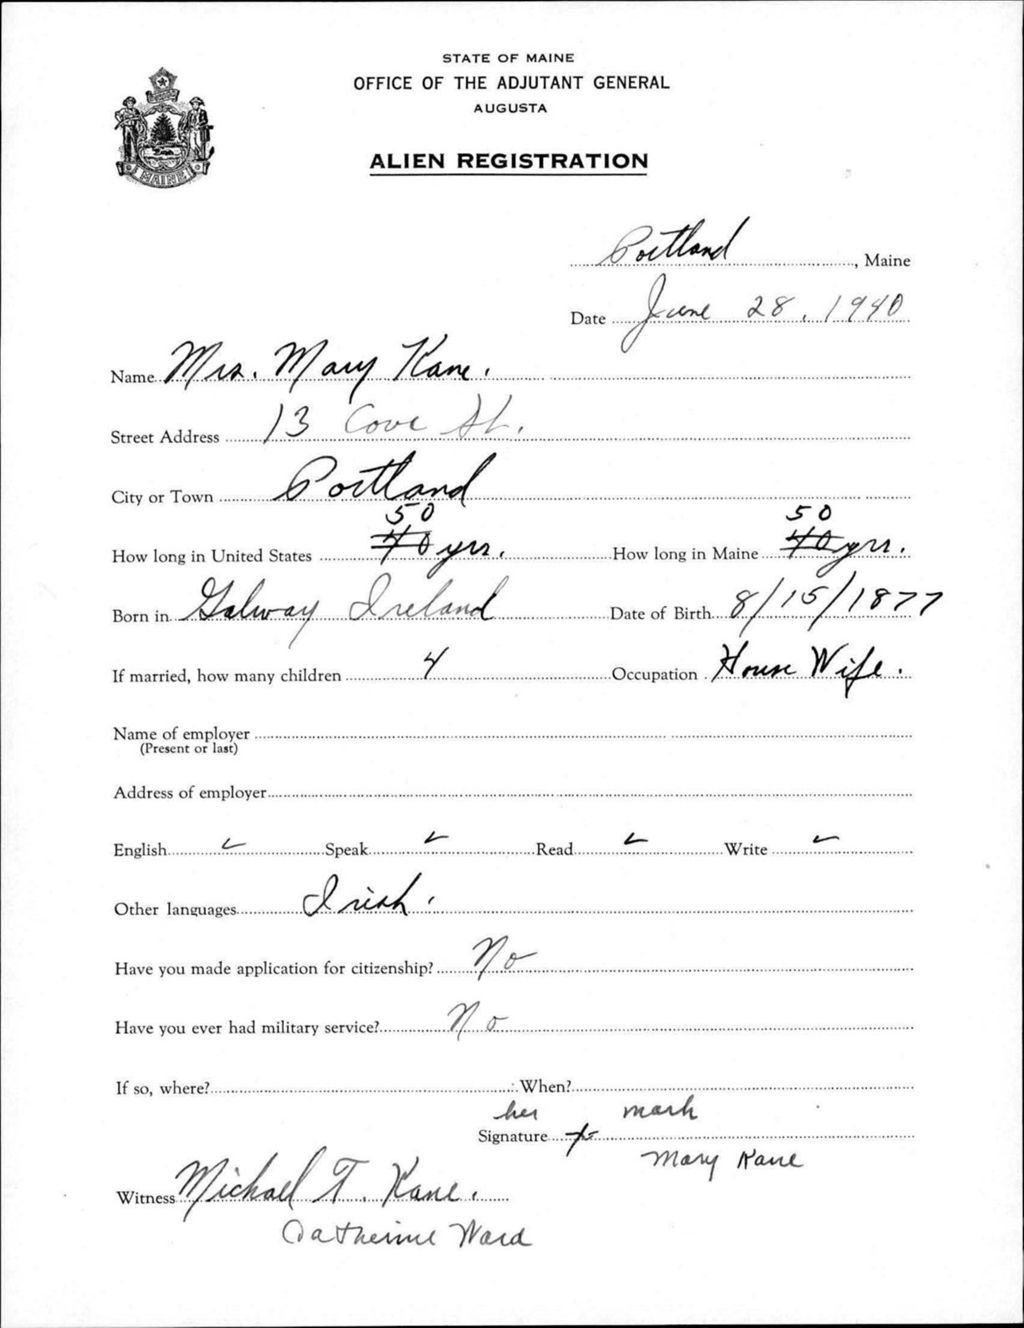 STATE OF MAINE
OFFICE OF THE ADJUTANT GENERAL
AUGUSTA
ALIEN REGISTRATION
MAINE
Portland, Maine
Date June 28, 1940
Name Mrs. Mary Kane.
Street Address 13 Cove St.
City or Town Portland
50 50
How long in United States 40 yrs. How long in Maine 40 yrs.
Born in Galway Ireland Date of Birth 8/15/1877
If married, how many children 4 Occupation House Wife.
Name of employer
(Present or last)
Address of employer
English ✓ Speak ✓ Read ✓ Write ✓
Other languages Irish.
Have you made application for citizenship? No
Have you ever had military service? No
If so, where? When?
her mark
Signature x
Mary Kane
Witness Michael T. Kane.
Catherine Ward